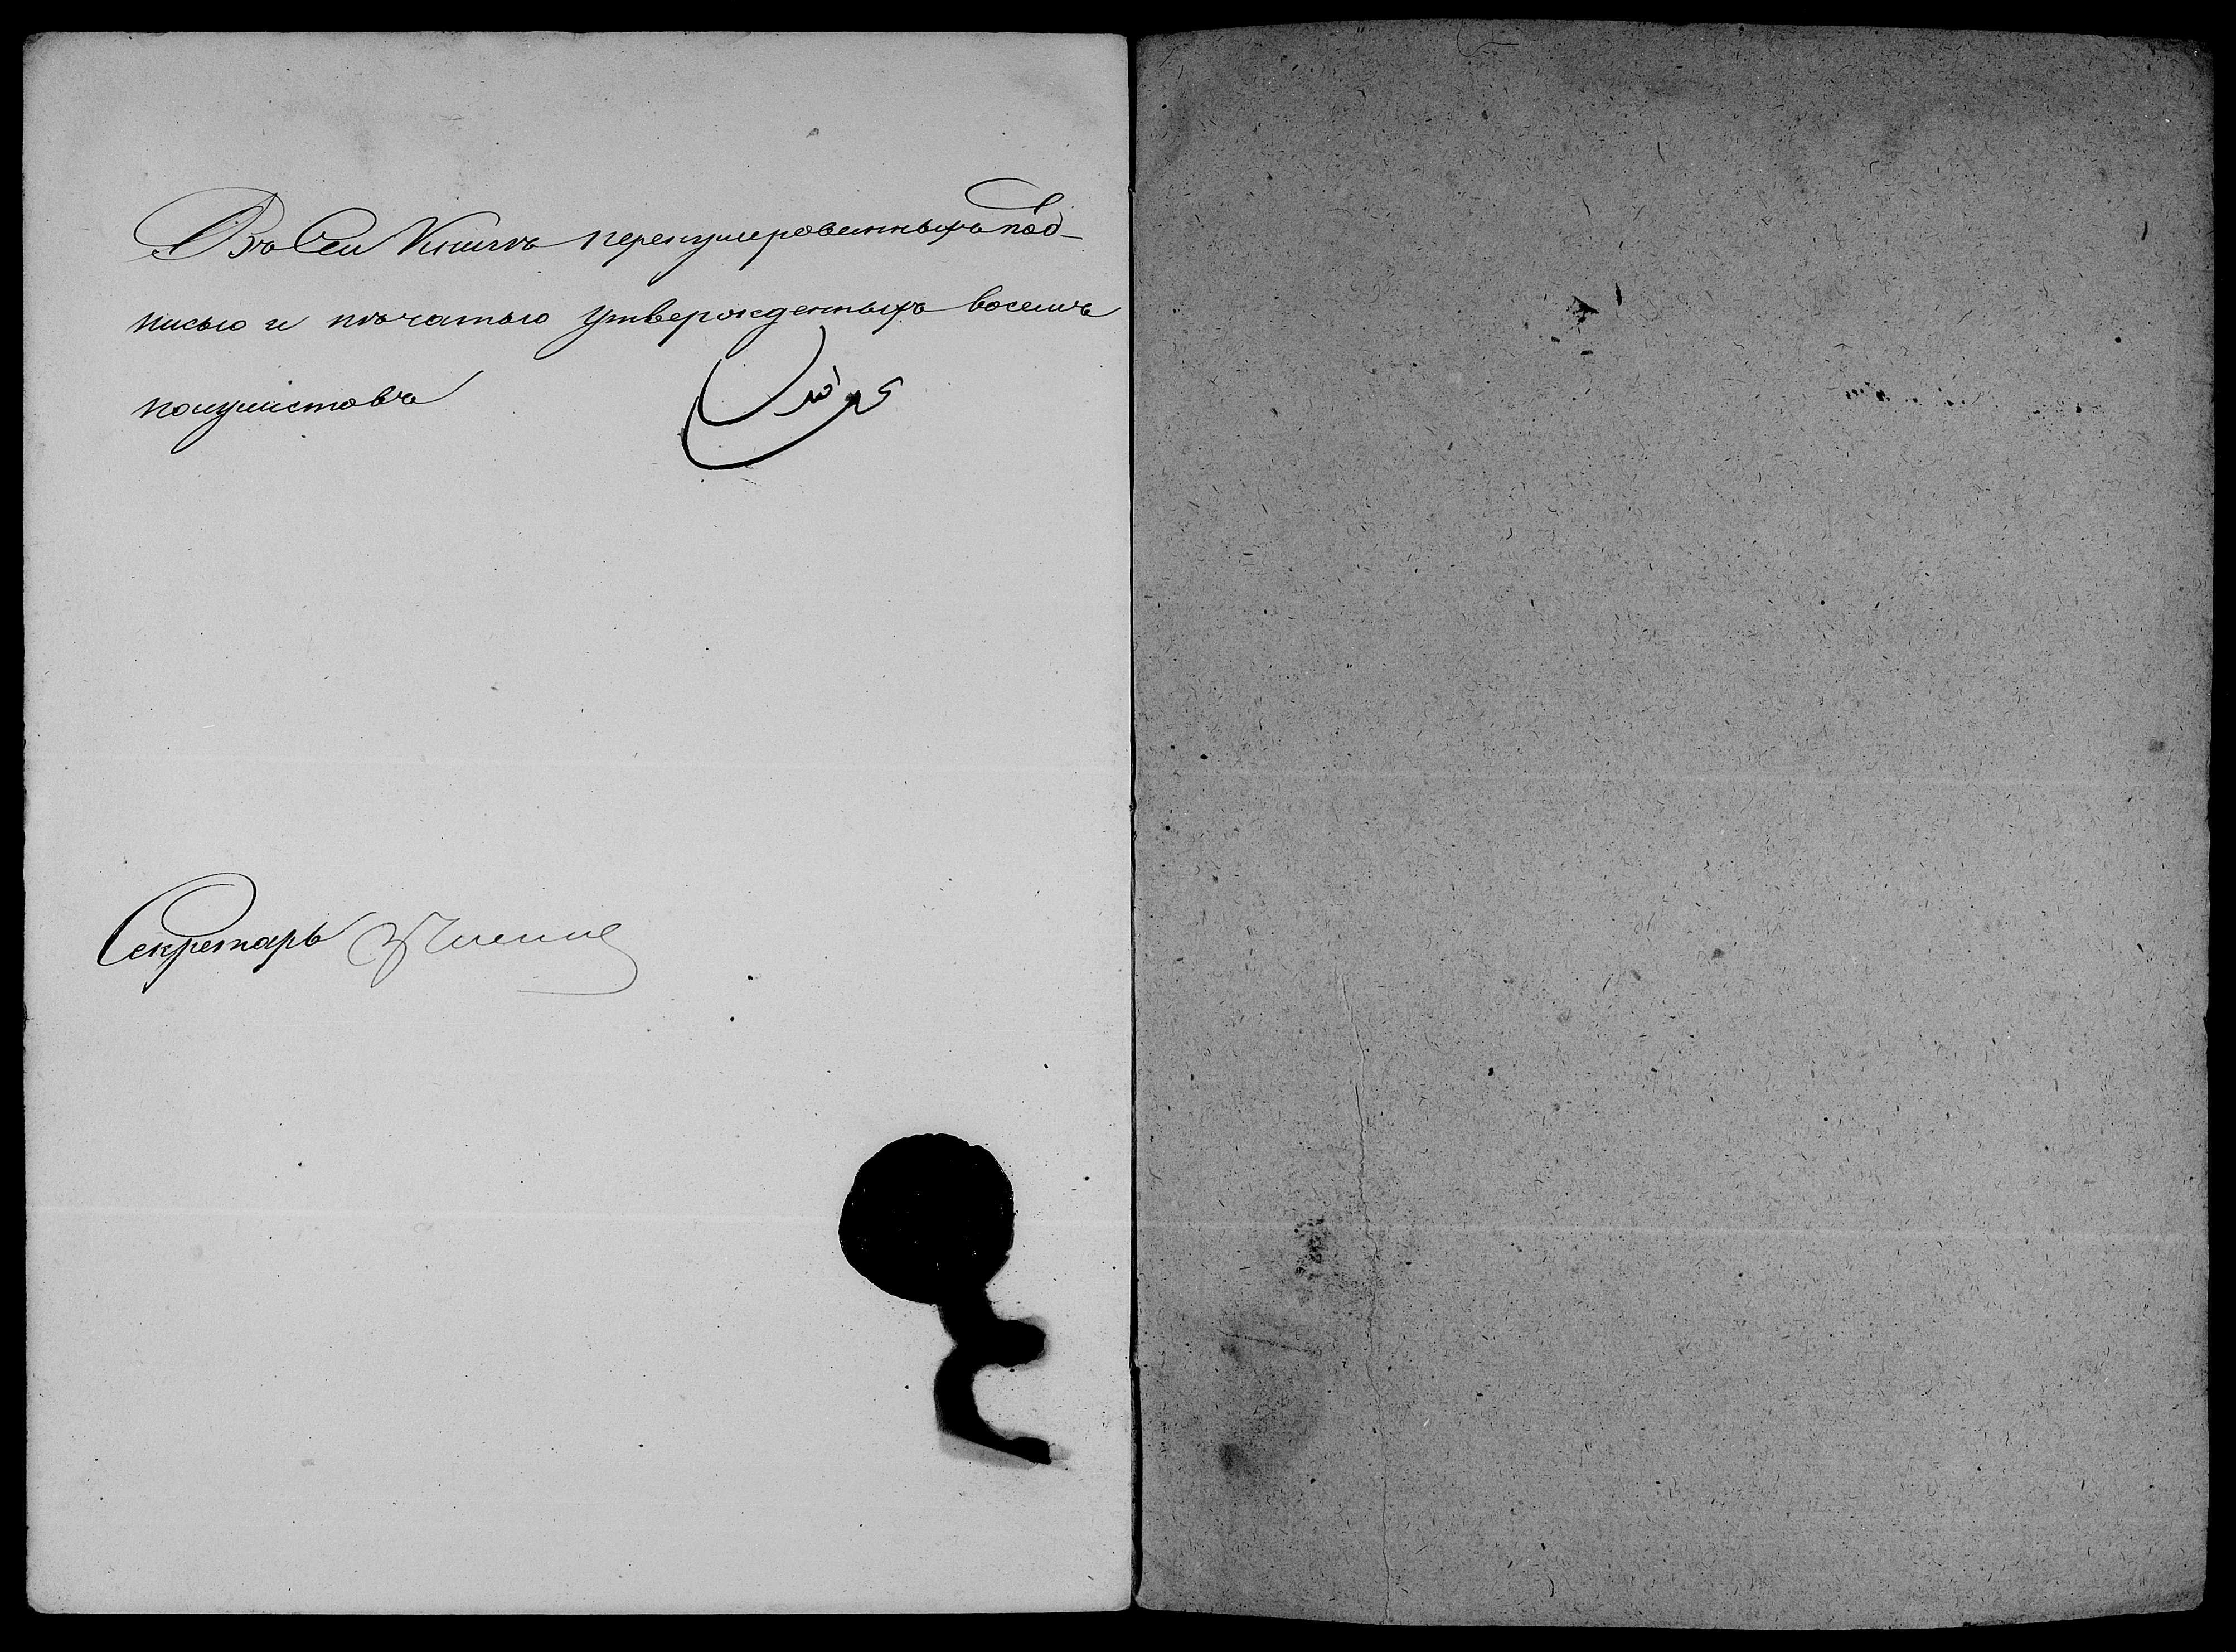 Въ Сеи Книгъ перенумерованныхъ под-
писью и пѣчатью утвержденныхъ восемъ
полулистовъ
Секретарь